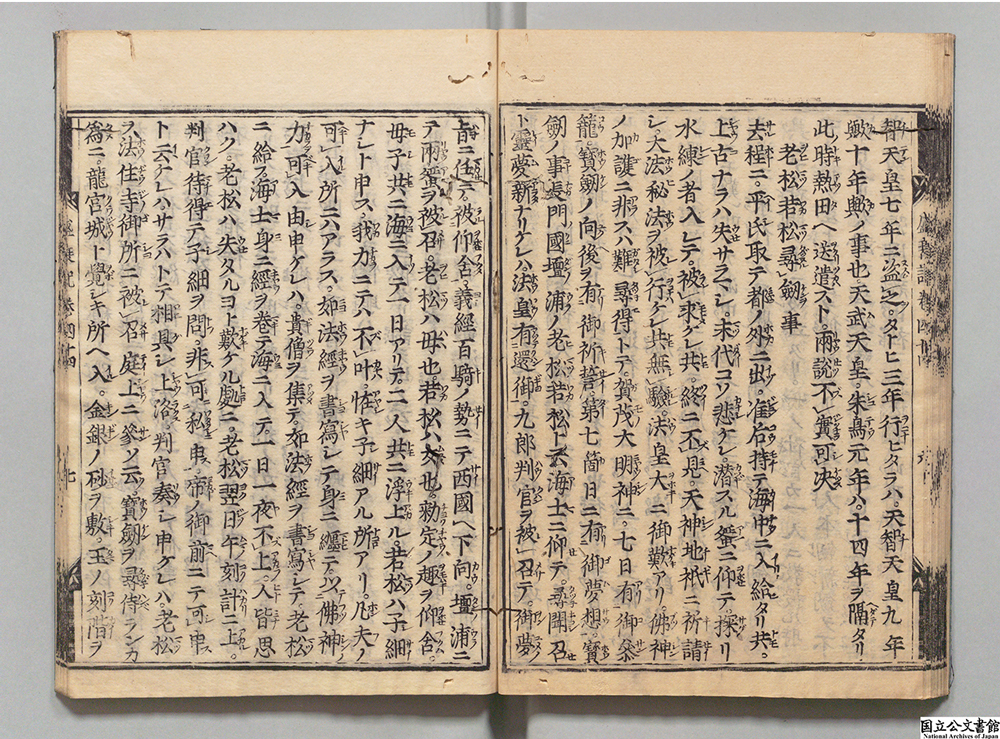 智天皇七年ニ盗之。タトヒ三年行ヒタラハ、天智天皇九年
歟、十年歟ノ事也、天武天皇、朱鳥元年ハ、十四年ヲ隔タリ、
此時熱田ヘ送遣スト、兩説不實可决
老松若松尋劔事
去程ニ、平氏取テ都ノ外ニ出、准后持テ海中ニ入給タリ共、
上古ナラハ失サラマシ、末代コソ悲ケレ、潜スル蜑ニ仰テ、探リ
水練ノ者入レテ被求ケレ共、終ニ不見、天神地祇ニ祈請
シ、大法秘法ヲ被行ケレ共無驗、法皇大ニ御歎アリ、佛神
ノ加護ニ非スハ難尋得トテ、賀茂大明神ニ、七日有御參
籠、寶劔ノ向後ヲ有御祈誓、第七箇日ニ有御夢想、寶
劔ノ事、長門國壇浦ノ老松若松ト云海士ニ仰テ、尋聞召
ト靈夢新ナリケレハ、法皇有還御、九郎判官ヲ被召テ、御夢ノ
旨ニ任テ、被仰含、義經百騎ノ勢ニテ西國ヘ下向、壇浦ニ
テ兩蜑ヲ被召、老松ハ母也、若松ハ女也、勅定ノ趣ヲ仰含、
母子共ニ海ニ入テ、一日アリテ、二人共ニ浮上ル、若松ハ子細
ナシト申ス、我力ニテハ不叶、怪キ子細アル所アリ、凡夫ノ
可入所ニハアラス、如法經ヲ書寫シテ身ニ纏テ、以佛神
力可入由申ケレハ、貴僧ヲ集テ、如法經ヲ書寫シテ、老松
ニ給フ、海士身ニ經ヲ卷テ海ニ入テ、一日一夜不上、人皆思
ハク、老松ハ失タルヨト歎ケル處ニ、老松翌日午刻計ニ上、
判官待得テ子細ヲ問、非可私申、帝ノ御前ニテ可申
ト云ケレハ、サラハトテ相具シ上洛、判官奏シ申ケレハ、老松
ヲ法住寺御所ニ被召、庭上ニ參ソ云、寶劔ヲ尋侍ランカ
爲ニ、龍宮城ト覺シキ所ヘ入、金銀ノ砂ヲ敷、玉ノ刻階ヲ
国立公文書館
National Archives of Japan